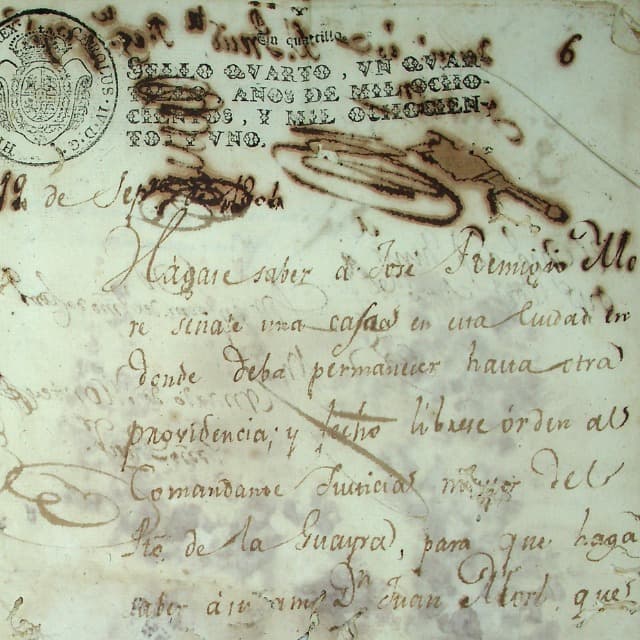 Un quartillo
6
SELLO QVARTO, VN QVAR
AÑOS DE MIL OCHO
CIENTOS, Y MIL OCHOCIEN-
TO Y VNO.
de Sepre
Hagase saber á José Firmigio
se señale una casa en esta Ciudad en
donde deba permanecer hasta otra
providencia; y fecho librese órden al
Comandante Justicia mayor del
Pto de la Guayra, para que haga
saber á su amo Dn Juan que